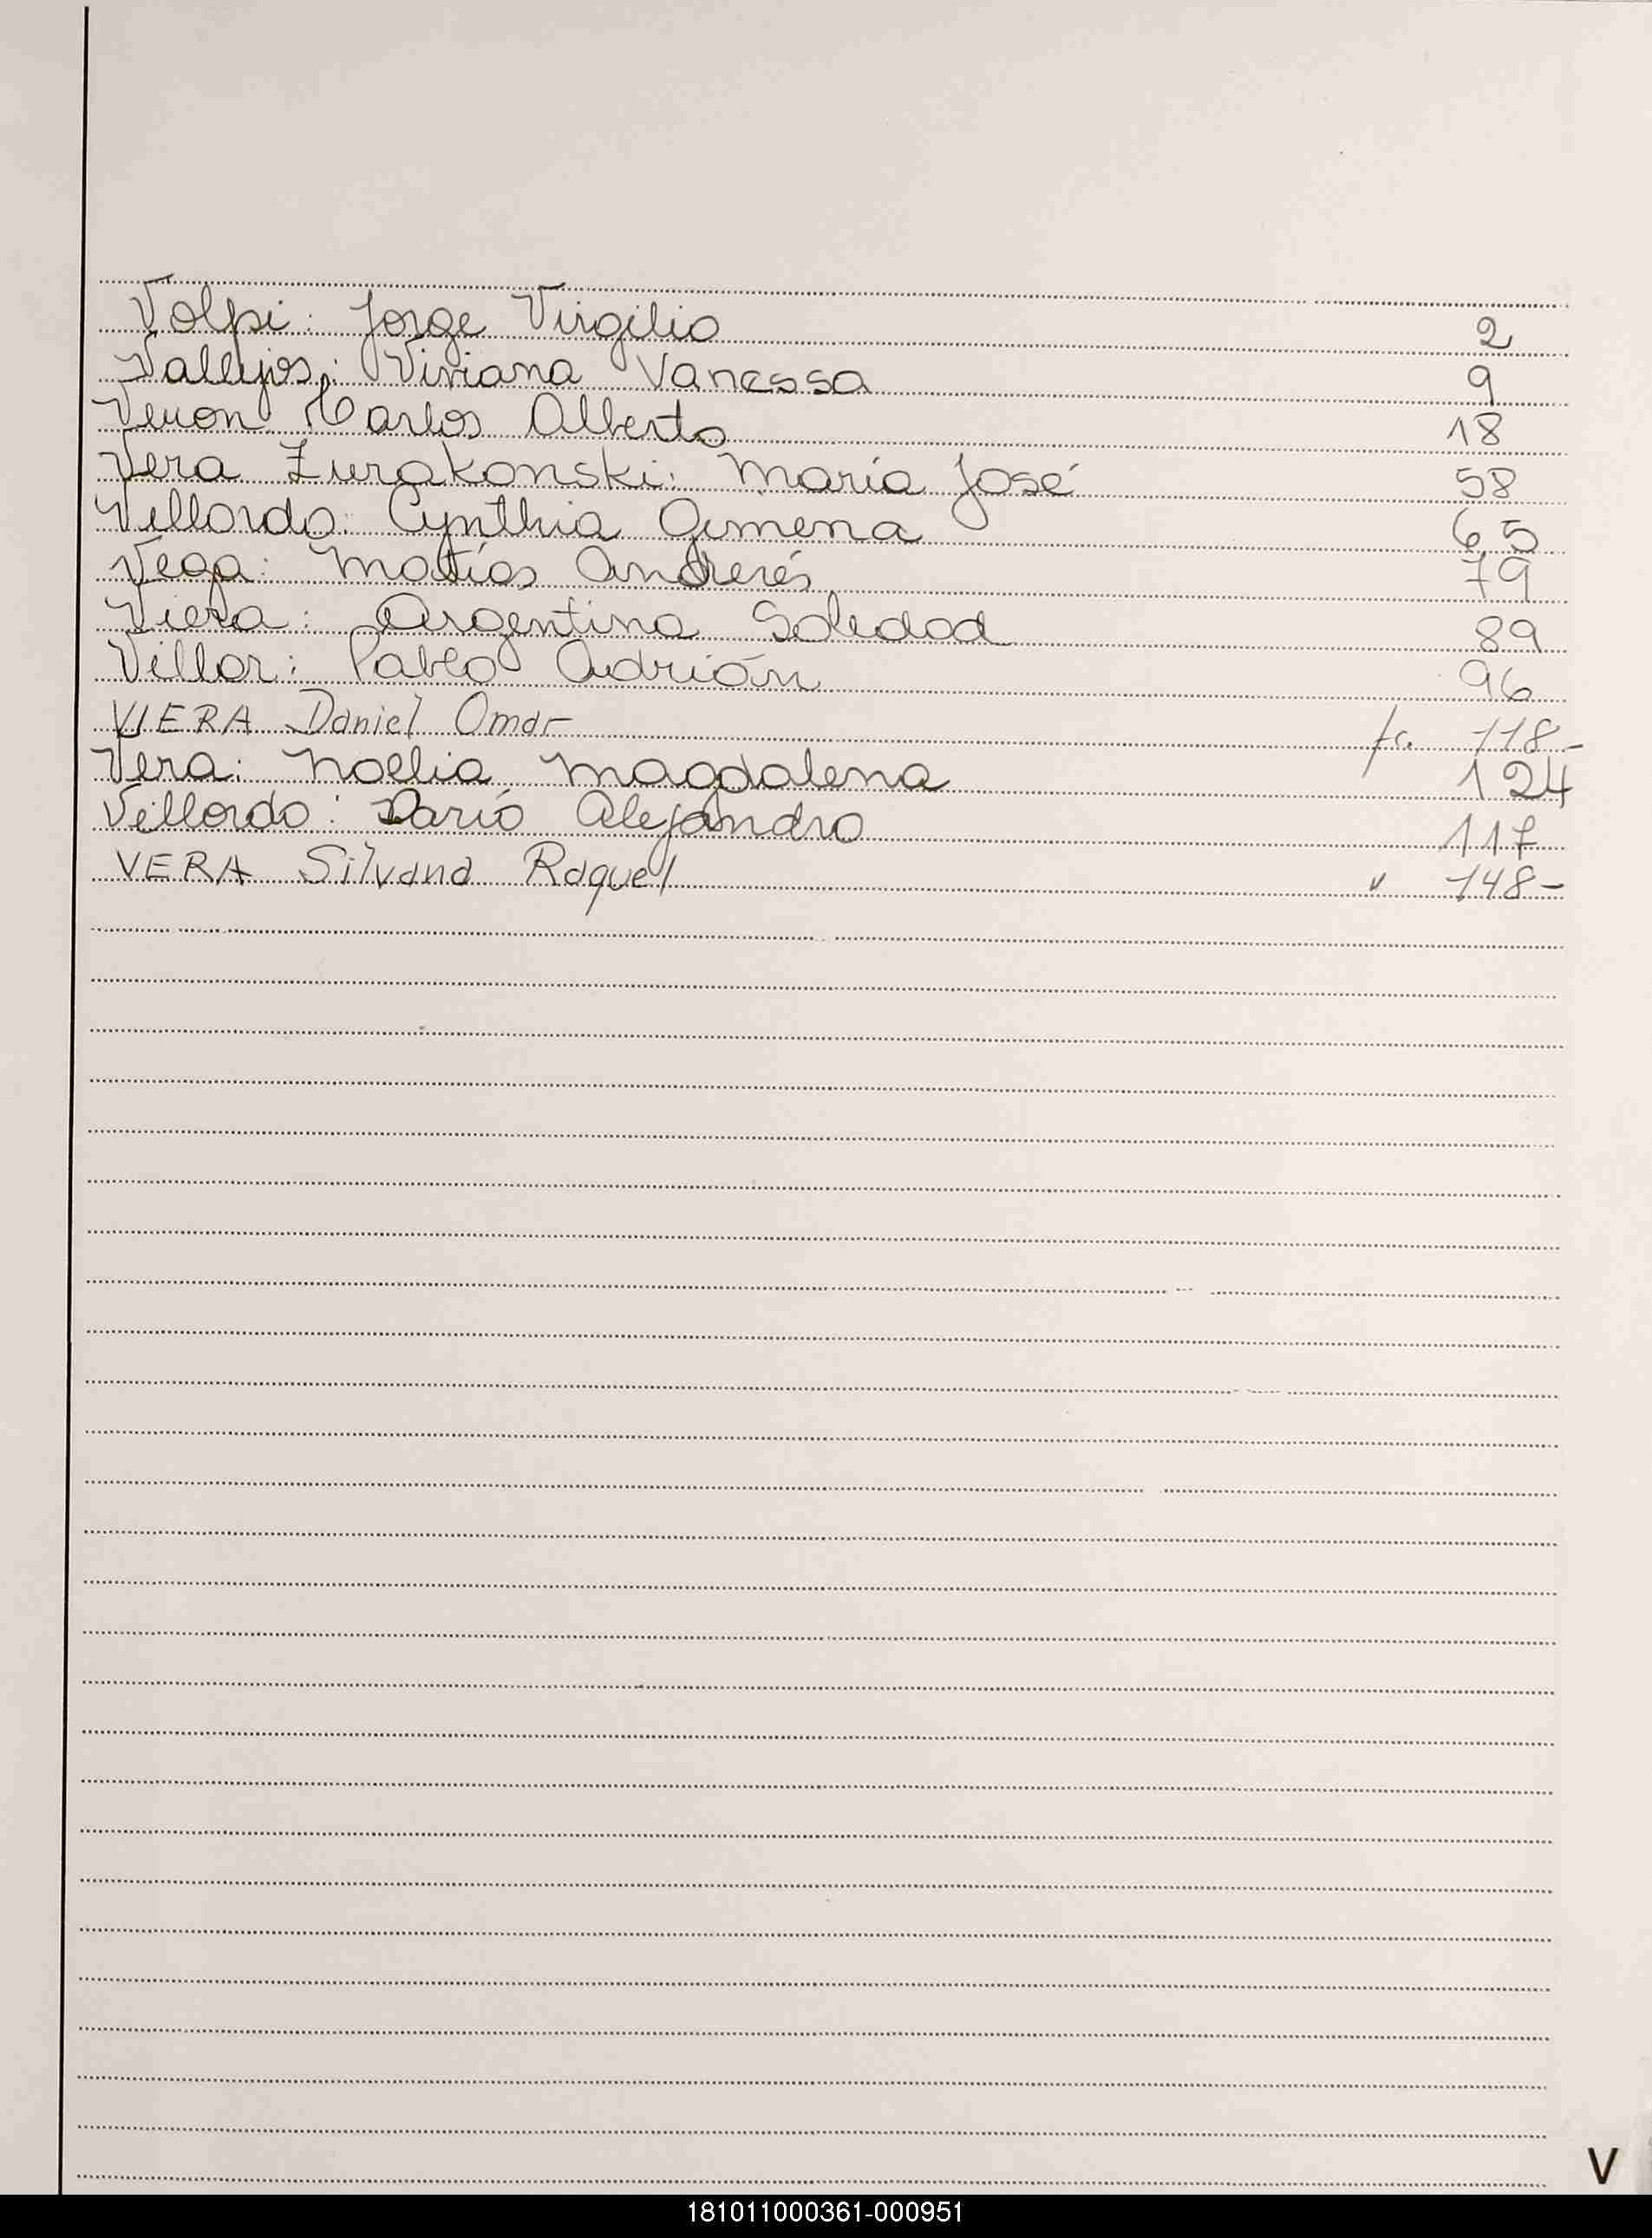 Volpi: Jorge Virgilio 2
Vallejos: Viviana Vanessa 9
Veron: Carlos Alberto 18
Vera Zurakonski: María José 58
Villordo: Cynthia Gimena 65
Vega: Matías Andrerés 79
Viera: Argentina Soledad 89
Villor: Pablo Adrián 96
VIERA Daniel Omar fc. 118-
Vera: Noelia Magdalena 124
Villordo: Darío Alejandro 117
VERA Silvana Raquel " 148-
V
181011000361-000951